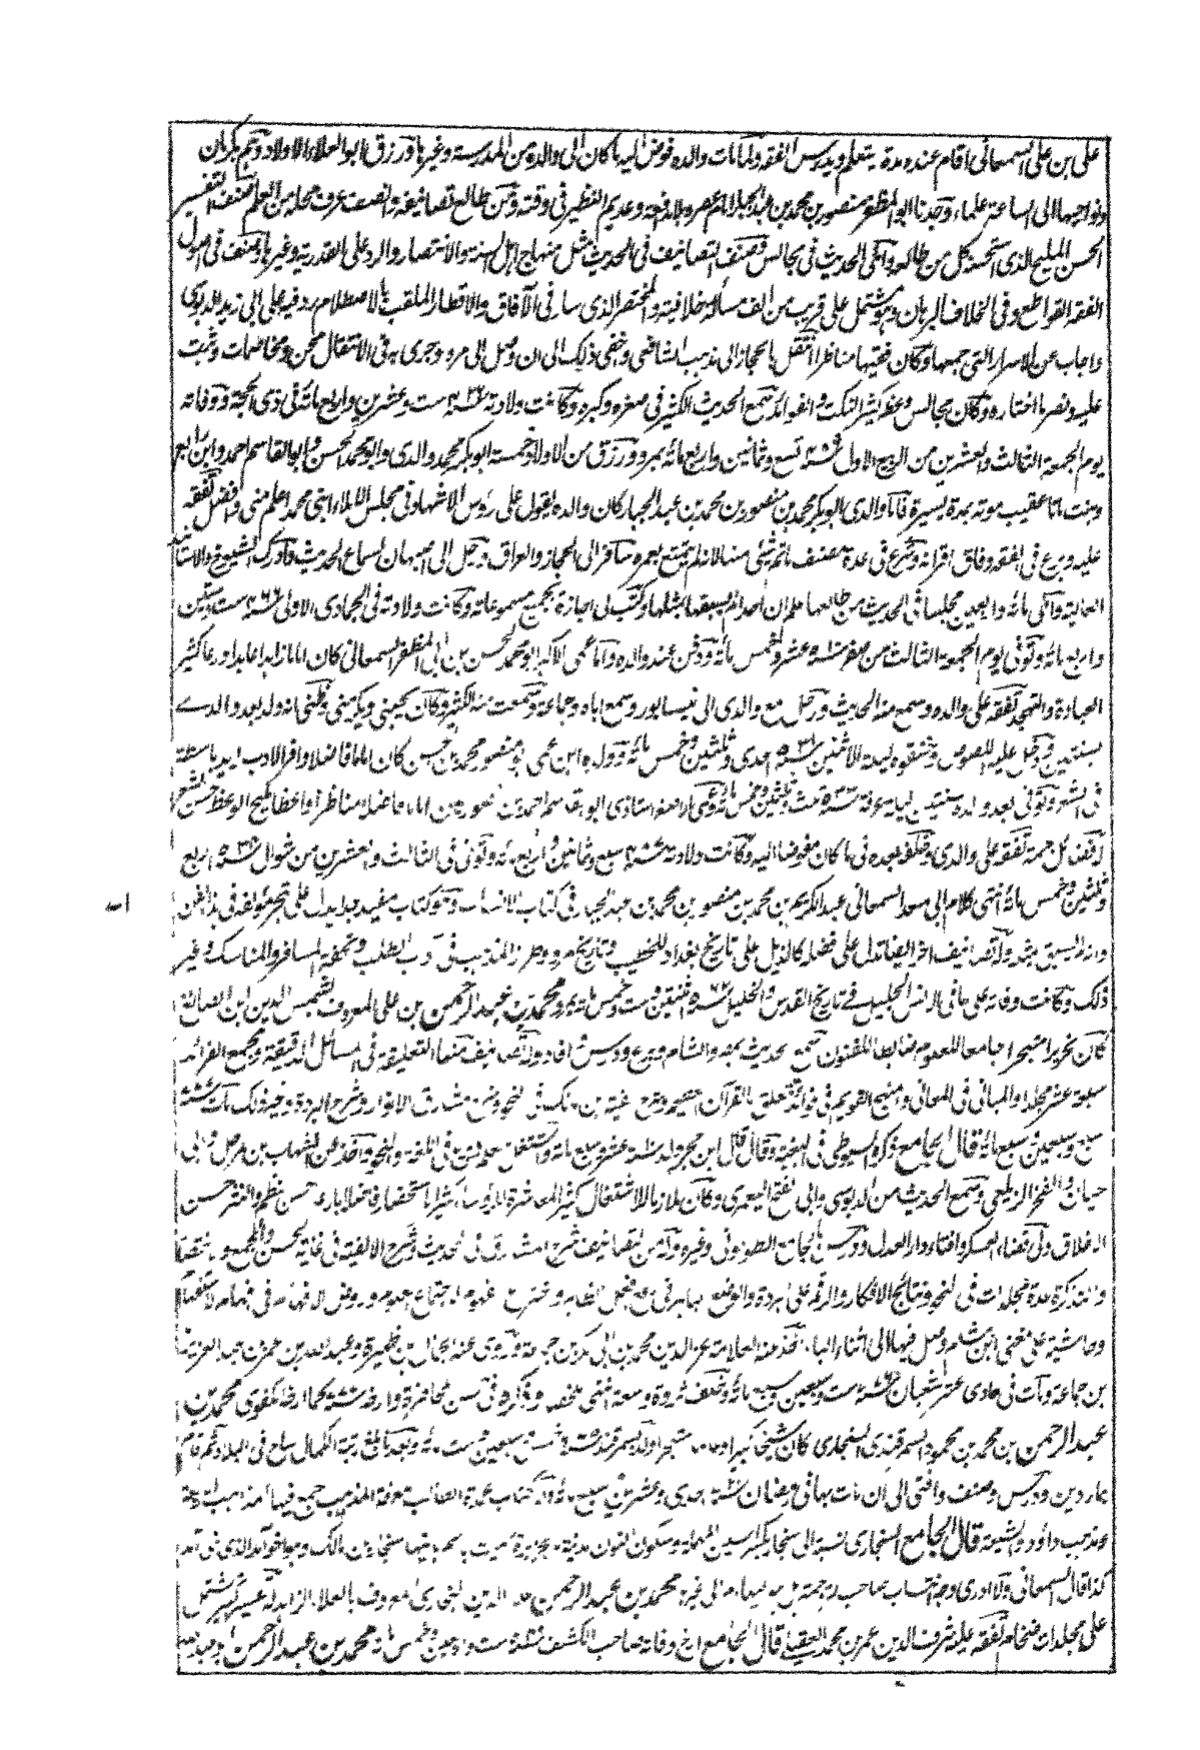 على بن على السمعانى اقام عنده مدة يتعلم ويدرس الفقه ولما مات والده فوض اليه ما كان الى والده من المدرسة وغيرها ورزق ابو العلاء الاولاد وهم بكرمان
ونواحيها الى الساعة علماء وجدنا ابو المظفر منصور بن محمد بن عبد الجبار امام عصره بلا مدافعة وعديم النظير فى وقته ومن طالع تصانيفه وانصف عرف محله من العلم صنف التفسير
الحسن المليح الذى استحسنه كل من طالعه واملى الحديث فى مجالس وصنف التصانيف فى الحديث مثل منهاج اهل السنة والانتصار والرد على القدرية وغيرها وصنف فى اصول
الفقه القواطع وفى الخلاف البرهان وهو مشتمل على قريب من الف مسألة خلافية والمختصر الذى سار فى الآفاق والاقطار الملقب بالاصطلام رد فيه على ابى زيد الدبوسى
واجاب عن الاسرار التى جمعها وكان فقيها مناظرا انتقل بالحجاز الى مذهب الشافعى واخفى ذلك الى ان وصل الى مرو وجرى له فى الانتقال محن ومخاصمات وثبت
عليه ونصر ما اختاره وكان مجالس وعظه كثير النكت والفوائد سمع الحديث الكثير فى صغره وكبره وكانت ولادته سنة ٤٢٦ ست وعشرين واربع مائة فى ذى الحجة ووفاته
يوم الجمعة الثالث والعشرين من الربيع الاول سنة ٤٨٩ تسع وثمانين واربع مائة بمرو ورزق من الاولاد خمسة ابو بكر محمد والدى وابو محمد الحسن وابو القاسم احمد وابن رابع
وبنت ماتا عقيب موته بمدة يسيرة فاما والدى ابو بكر محمد بن منصور بن محمد بن عبد الجبار كان والده يقول على رؤس الاشهاد فى مجلس الاملاء ابنى محمد اعلم منى وافضل تفقه
عليه وبرع فى الفقه وفاق اقرانه وشرع فى عدة مصنفات ما تم شئ منها لانه لم يمتع بعمره سافر الى الحجاز والعراق ورحل الى اصبهان لسماع الحديث وادرك الشيوخ والاسانيد
العالية واملى مائة واربعين مجلسا فى الحديث من طالعها علم ان احدا لم يسبقه بمثلها وكتب لى اجازة بجميع مسموعاته وكانت ولادته فى الجمادى الاولى سنة ٤٦٦ ست وستين
واربع مائة وتوفى يوم الجمعة الثالث من صفر سنة ٥١٠ عشر وخمس مائة ودفن عند والده واما عمى الاكبر ابو محمد الحسن بن ابى المظفر السمعانى كان اماما زاهدا عابدا ورعا كثير
العبادة والتهجد تفقه على والده وسمع منه الحديث ورحل مع والدى الى نيسابور وسمع اباه وجماعة وسمعت منه الكثير وكان يحبنى ويكرمنى وظنى انه ولد بعد والدى
بسنتين ودخل عليه اللصوص وخنقوه ليلة الاثنين سنة ٥٣١ احدى وثلثين وخمس مائة وولده ابن عمى ابو منصور محمد بن حسن كان اماما فاضلا وافر الادب له يد باسطة
فى الشعر وتوفى بعد والده سنتين ليلة عرفة سنة ٥٣٣ ثلث وثلثين وخمس مائة وعمى الاصغر استاذى ابو القاسم احمد بن منصور من اماما فاضلا مناظرا واعظا مليح الوعظ حسن الشعر
له فضائل جمة تفقه على والدى وخلفه بعده فى ما كان مفوضا اليه وكانت ولادته سنة ٤٨٧ سبع وثمانين واربع مائة وتوفى فى الثالث والعشرين من شوال سنة ٥٣٤ اربع
وثلثين وخمس مائة انتهى كلام ابى سعد السمعانى عبد الكريم بن محمد بن منصور بن محمد بن عبد الجبار فى كتاب الانساب وهو كتاب مفيد جدا يدل على تبحر مؤلفه فى هذا الفن
وانه لم يسبق بمثله وله تصانيف اخر ايضا تدل على فضله كالذيل على تاريخ بغداد للخطيب وتاريخ مرو وطراز المذهب فى ادب الطلب وتحفة المسافر والمناسك وغير
ذلك وكانت وفاته على ما فى الانس الجليل فى تاريخ القدس والخليل سنة ٥٦٢ اثنتين وستين وخمس مائة بمرو محمد بن عبد الرحمن بن على المعروف بشمس الدين ابن الصائغ
كان نحريرا متبحرا جامعا للعلوم ضابطا للفنون سمع الحديث بمصر والشام وبرع ودرس وافاد وله تصانيف منها التعليقة فى المسائل الدقيقة ومجمع الفرائد
سبعة عشر مجلدا والمبانى فى المعانى والمنهج القويم فى فوائد تتعلق بالقرآن العظيم وشرح الفية بن مالك فى النحو وشرح مشارق الانوار وشرح البردة وغير ذلك مات سنة ٧٧٧
سبع وسبعين وسبع مائة قال الجامع ذكره السيوطى فى البغية وقال قال ابن حجر ولد سنة عشر وسبع مائة واشتغل بالعلم وبرع فى اللغة والنحو واخذ عن الشهاب بن المرحل وابى
حيان والفخر الزيلعى وسمع الحديث من الدبوسى وابى الفتح اليعمرى وكان ملازما للاشتغال كثير المعاشرة للرؤساء كثير الاستحضار فاضلا بارعا حسن النظم والنثر حسن
الاخلاق ولى قضاء العسكر وافتاء دار العدل ودرس بالجامع الطولونى وغيره وله من التصانيف شرح المشارق فى الحديث وشرح الالفية فى غاية الحسن والجمع
والتذكرة عدة مجلدات فى النحو ونتائج الافكار والرقم على البردة والوضع الباهر فى رفع افعل الظاهر واختراع الفهوم لاجتماع العلوم وروض الافهام فى اقسام الاستفهام
وحاشية على مغنى ابن هشام وصل فيها الى اثناء الباء اخذ عنه العلامة عز الدين محمد بن ابى بكر بن جماعة وروى عنه الجمال بن ظهيرة وعبد الله بن عمر بن عبد العزيز
بن جماعة ومات فى حادى عشر شعبان سنة ٧٧٦ ست وسبعين وسبع مائة وخلف ثروة وسعة انتهى ملخصا وذكره فى حسن المحاضرة وارخه سنة كما ارخه الكفوى محمد بن
عبد الرحمن بن محمد بن محمود السمرقندى السنجارى كان شيخا كبيرا متبحرا ولد بسمرقند سنة خمس وسبعين وست مائة وبعد ما بلغ رتبة الكمال ساح فى البلاد ثم قام
بماردين ودرس وصنف وافتى الى ان مات بها فى رمضان سنة ٧٢١ احدى وعشرين وسبع مائة وله كتاب عمدة الطالب لمعرفة المذاهب جمع فيها مذاهب الاربعة
ومذهب داود والشيعة قال الجامع السنجارى نسبة الى سنجار بكسر السين المهملة وسكون النون مدينة بجزيرة سميت باسم بانيها سنجار بن مالك وهو اخو آمد الذى بنى آمد
كذا قال السمعانى ولا ادرى وجه انتساب صاحب الترجمة هل هو اليها ام الى غيره محمد بن عبد الرحمن علاء الدين البخارى المعروف بالعلاء الزاهد له تفسير يشتمل
على مجلدات ضخام تفقه عليه شرف الدين عمر بن محمد العقيلى قال الجامع ارخ وفاته صاحب الكشف سنة ٥٤٦ ست واربعين وخمس مائة محمد بن عبد الرحمن ابو عبد الله